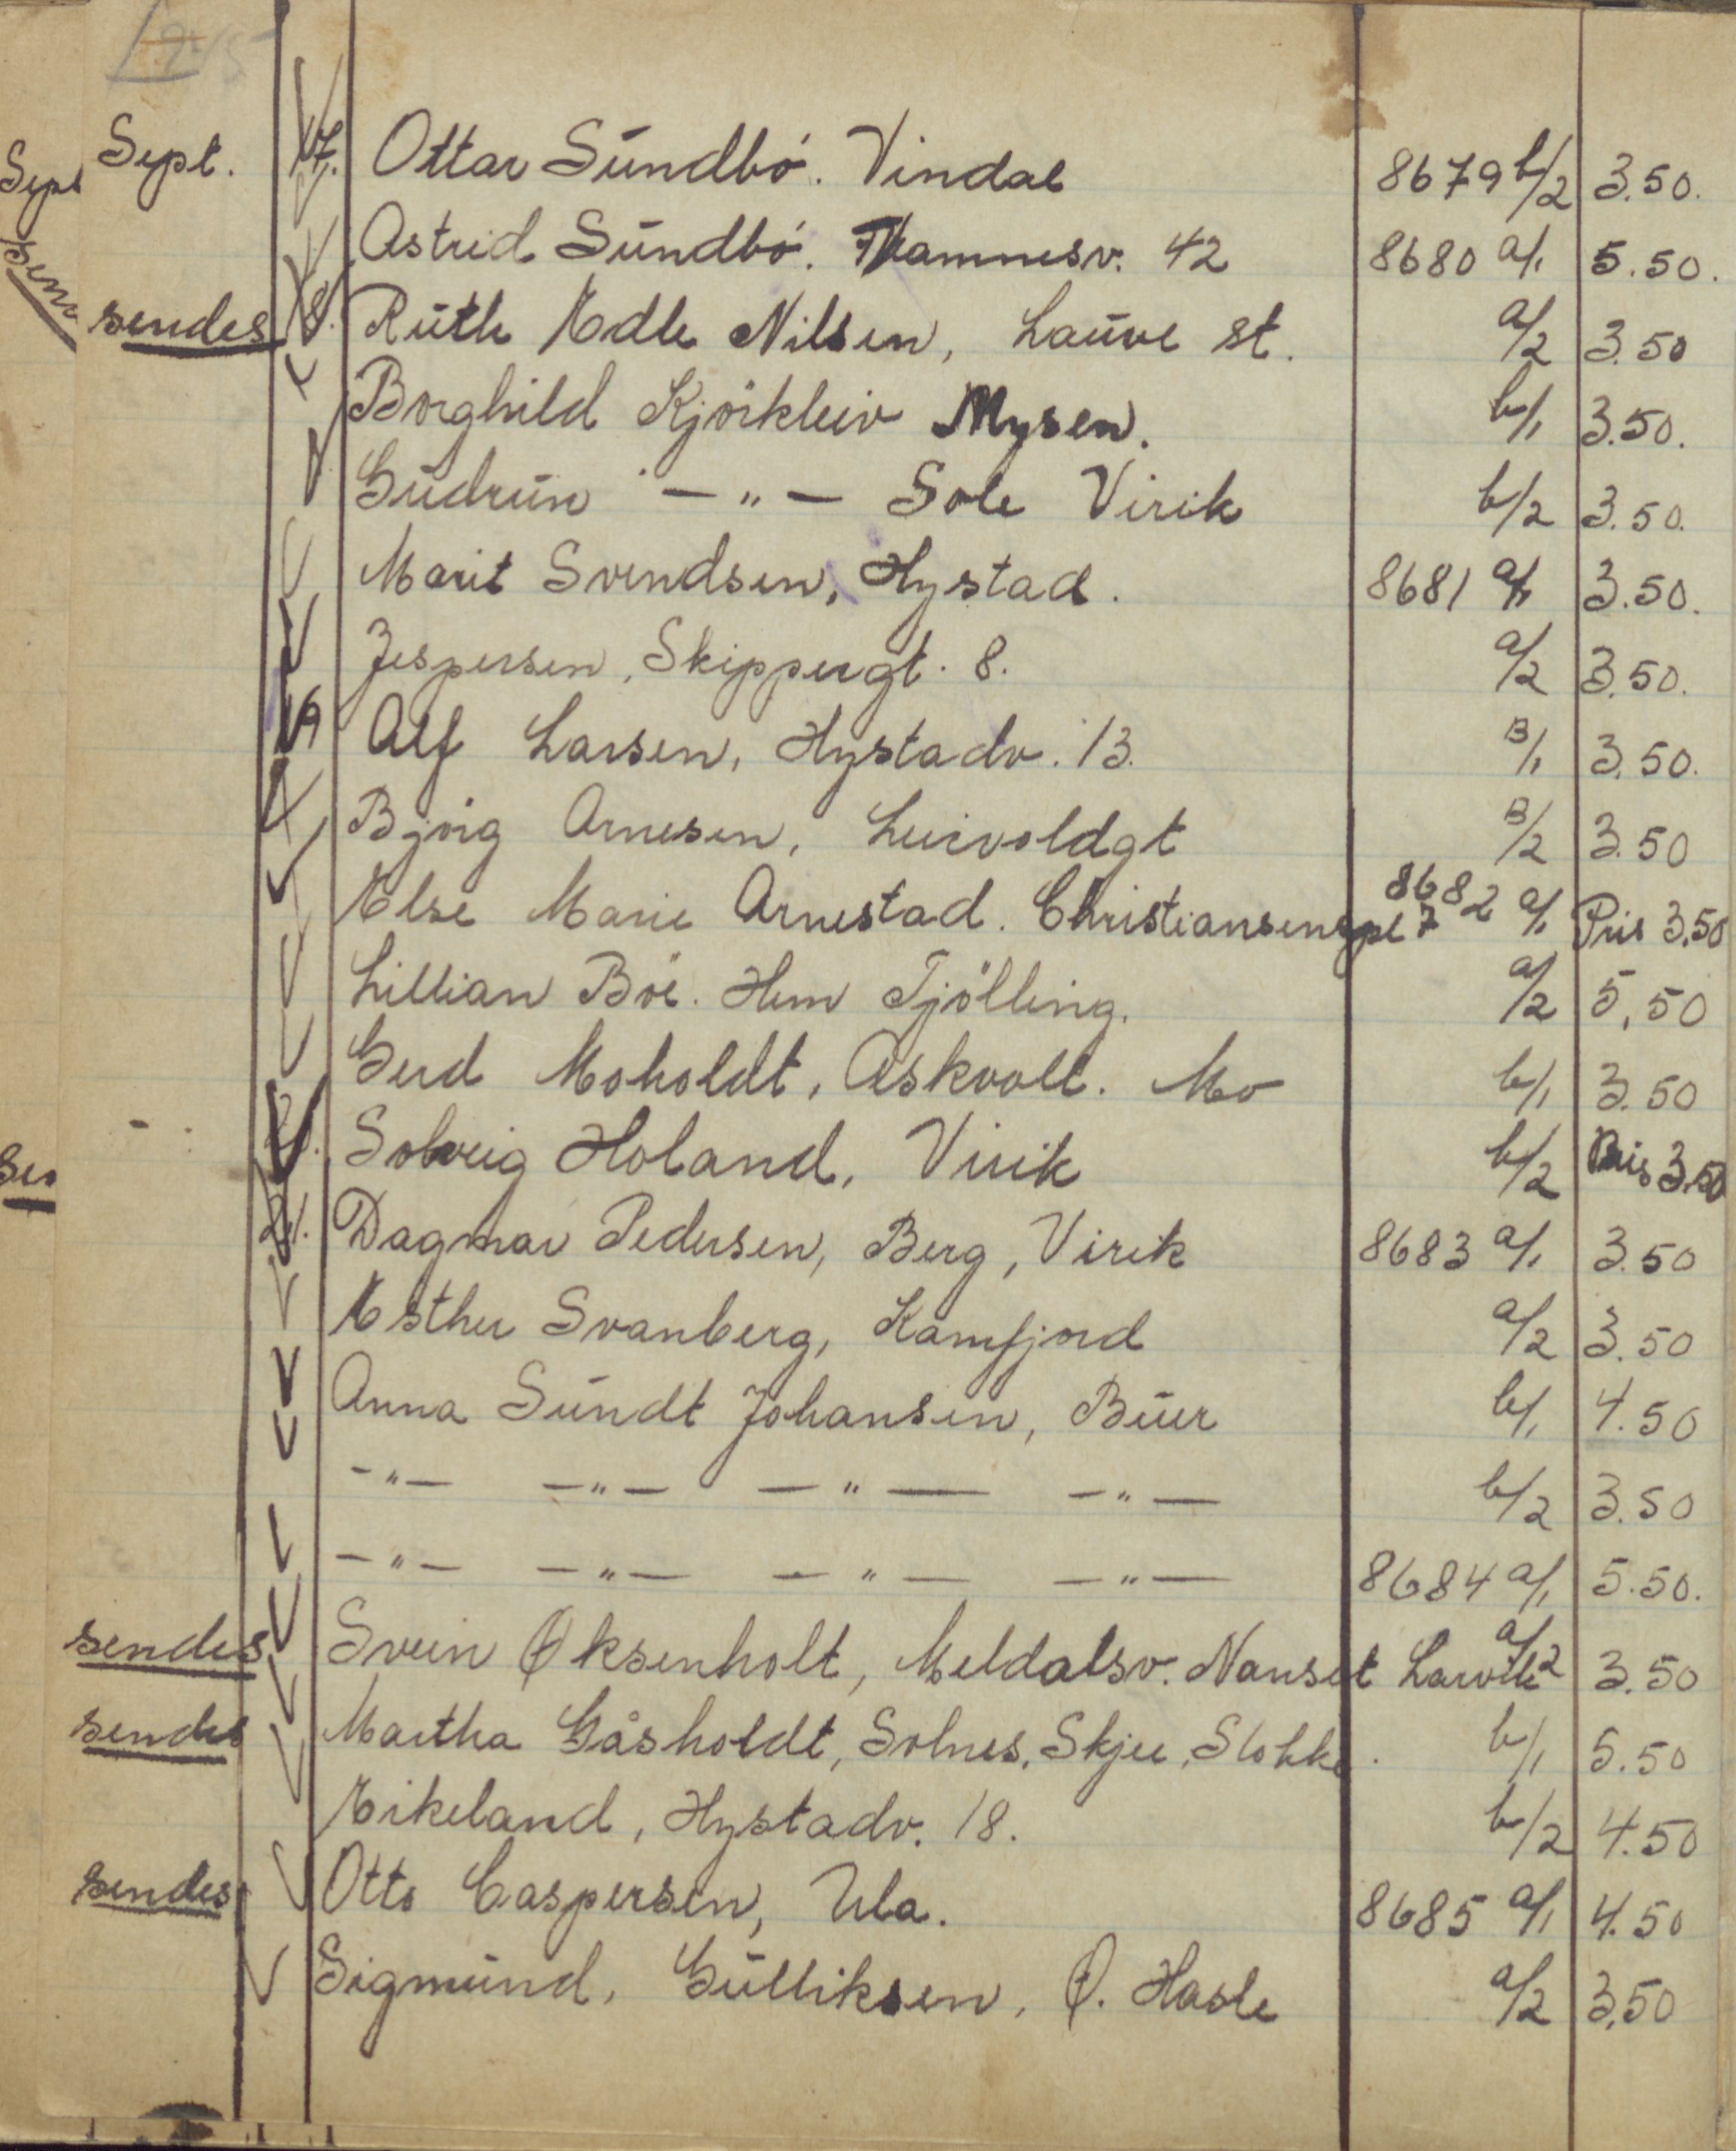 Sept. 17. Ottar Sundbö. Vindal 8679 b/2 3.50.
Astrid Sundbö. 42 8680 a/1 5.50.
sendes 18. Ruth Edle Nilsen, Lauve st. a/2 3.50
Borghild Kjörkleiv Mysen. b/1 3.50.
Gudrun —"— Sole Virik b/2 3.50.
Marit Svendsen, Hystad. 8681 a/1 3.50.
Jespersen, Skippergt. 8. a/2 3.50.
19 Alf Larsen, Hystadv. 13. B/1 3.50.
Bjørg Arnesen, Leirvoldgt B/2 3.50
Else Marie Arnestad. Christiansenspl 7 8682 a/1 Pris 3.50
Lillian Böe. Hem Tjölling. a/2 5,50
Gerd Moholdt, Askvoll. Mo b/1 3.50
Solveig Holand, Virik b/2 Pris 3.50
21. Dagmar Pedersen, Berg, Virik 8683 a/1 3.50
Esther Svanberg, Kamfjord a/2 3.50
Anna Sundt Johansen, Buer b/1 4.50
—"— —"— —"— —"— b/2 3.50
—"— —"— —"— —"— 8684 a/1 5.50.
sendes Svein Øksenholt, Meldalsv. Nanset Larvik a/2 3.50
sendes Martha Gåsholdt, Solnes, Skjee, Stokke. b/1 5.50
Eikeland, Hystadv. 18. b/2 4.50
sendes Otto Caspersen, Ula. 8685 a/1 4.50
Sigmund, Gulliksen, Ø. Hasle a/2 3,50